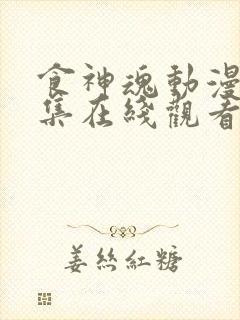 食神魂動漫
集在綫觀看
姜絲紅糖